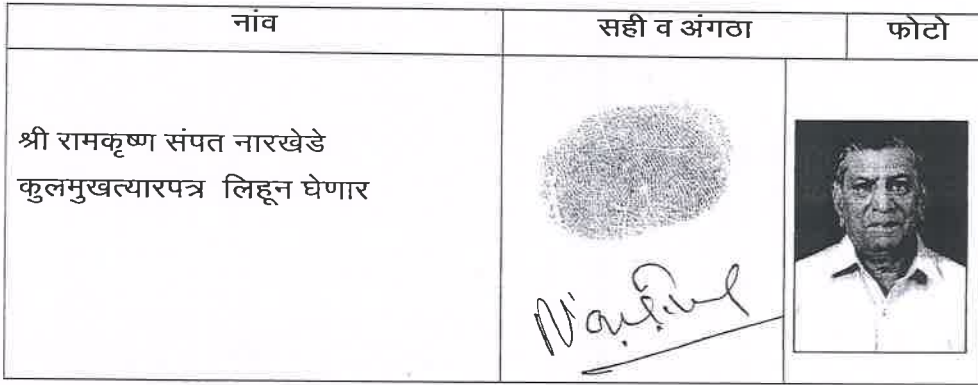 नांव सही व अंगठा फोटो
श्री रामकृष्ण संपत नारखेडे
कुलमुखत्यारपत्र लिहून घेणार